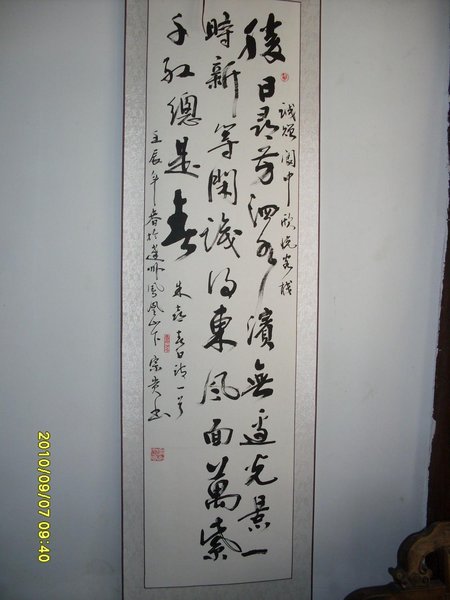 誠頌閬中欣悦客棧
勝日尋芳泗水濱無邊光景一
時新等閑識得東風面萬紫
千紅總是春
朱熹春日詩一首
壬辰年春於蓬州鳳凰山下宗贵书
2010/09/07 09:40